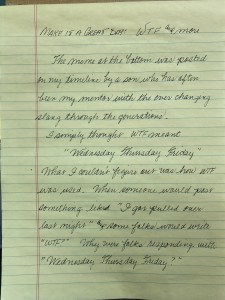 MAKE IS A GREAT DAY! WTF & more
The meme at the bottom was posted
on my timeline by a son who has often
been my mentor with the ever changing
slang through the generations.
I simply thought WTF meant
"Wednesday Thursday Friday"
What I couldn't figure out was how WTF
was used. When someone would post
something liked "I got pulled over
last night" & some folks would write
"WTF?" Why were folks responding with
"Wednesday Thursday Friday?"